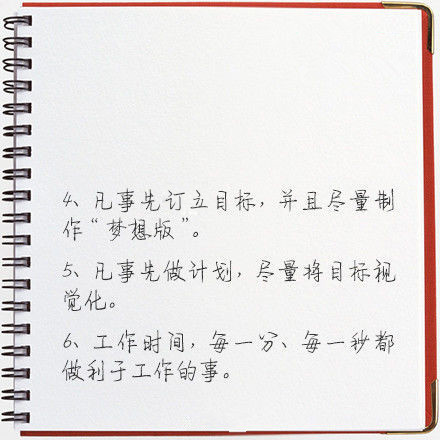 4、凡事先订立目标，并且尽量制
作“梦想版”。
5、凡事先做计划，尽量将目标视
觉化。
6、工作时间，每一分、每一秒都
做利于工作的事。